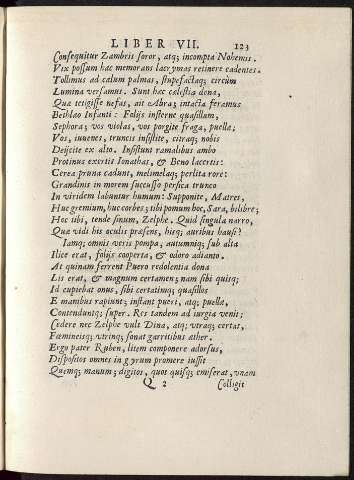 LIBER VII. 123
Consequitur Zambris soror, atq; incompta Nohemis.
Vix possum hac memorans lacrymas retinere cadentes.
Tollimus ad cælum palmas, stupefactaq; circùm
Lumina versamus. Sunt hac cælestia dona,
Quæ tetigisse nefas, ait Abra; intacta feramus
Bethlao Infanti: Folijs insterne quasillum,
Sephora; vos violas, vos porgite fraga, puellæ;
Vos, iuuenes, truncis insistite, citraq; nobis
Deijcite ex alto. Insistunt ramalibus ambo
Protinus exertis Ionathas, & Beno lacertis:
Cerea pruna cadunt, melimelaq; perlita rore:
Grandinis in morem succusso persica trunco
In viridem labuntur humum: Supponite, Matres,
Huc gremium, huc corbes; tibi pomum hoc, Sara, bilibre;
Hoc tibi, tende sinum, Zelphe. Quid singula narro,
Quæ vidi his oculis præsens, hisq; auribus hausi?
Iamq; omnis veris pompa, autumniq; sub alta
Ilice erat, folijs cooperta, & odoro adianto.
At quinam ferrent Puero redolentia dona
Lis erat, & magnum certamen; nam sibi quisq;
Id cupiebat onus, sibi certatimq; quasillos
E manibus rapiunt; instant pueri, atq; puellæ,
Contenduntq; super. Res tandem ad iurgia venit;
Cedere nec Zelphe vult Dina, atq; vtraq; certat,
Fœmineisq; vtrinq; sonat garritibus æther.
Ergo pater Ruben, litem componere adorsus,
Dispositos omnes in gyrum promere iussit
Quemq; manum; digitos, quot quisq; emiserat, vnam
Q 2 Colligit